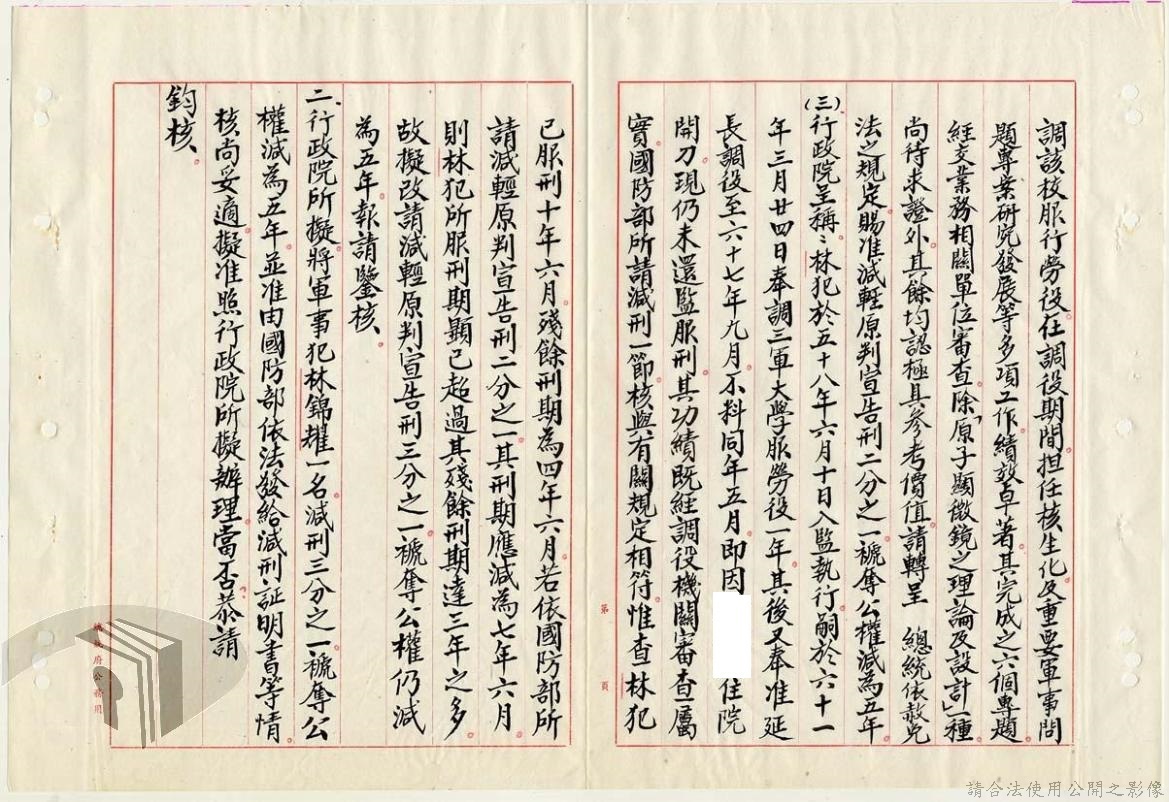 調該校服行勞役在調役期間。担任核生化及重要軍事問
題專案研究發展等多項工作。績效卓著。其完成之六個專題。
經交業務相關單位審查。除「原子顯微鏡之理論及設計」一種
尚待求證外。其餘均認極具參考價值。請轉呈 總統依赦免
法之規定。賜准減輕原判宣告刑二分之一。褫奪公權減為五年。
(三)行政院呈稱:林犯於五十八年六月十日入監執行。嗣於六十一
年三月廿四日奉調三軍大學服勞役一年。其後又奉准延
長調役至六十七年九月。不料同年五月。即因 住院
開刀。現仍未還監服刑。其功績既經調役機關審查屬
實。國防部所請減刑一節。核與有關規定相符。惟查林犯
第 頁
已服刑十年六月。殘餘刑期為四年六月。若依國防部所
請減輕原判宣告刑二分之一。其刑期應減為七年六月
則林犯所服刑期顯已超過其殘餘刑期達三年之多。
故擬改請減輕原判宣告刑三分之一。褫奪公權仍減
為五年。報請鑒核、
二、行政院所擬。將軍事犯林錦耀一名減刑三分之一。褫奪公
權減為五年。並准由國防部依法發給減刑証明書等情
核尚妥適。擬准照行政院所擬辦理。當否。恭請
鈞核、
總統府公務用
請合法使用公開之影像